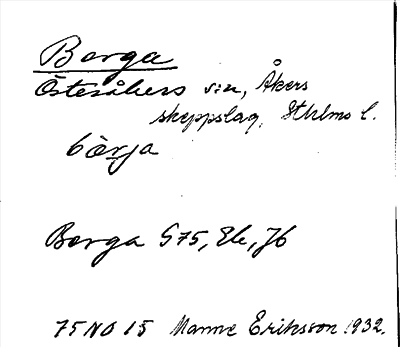 Borga
Österåkers sn, Åkers
skeppslag, Sthlms l.
bòrja
Borga G75, Ek, Jb
75 NO 15 Manne Eriksson 1932.